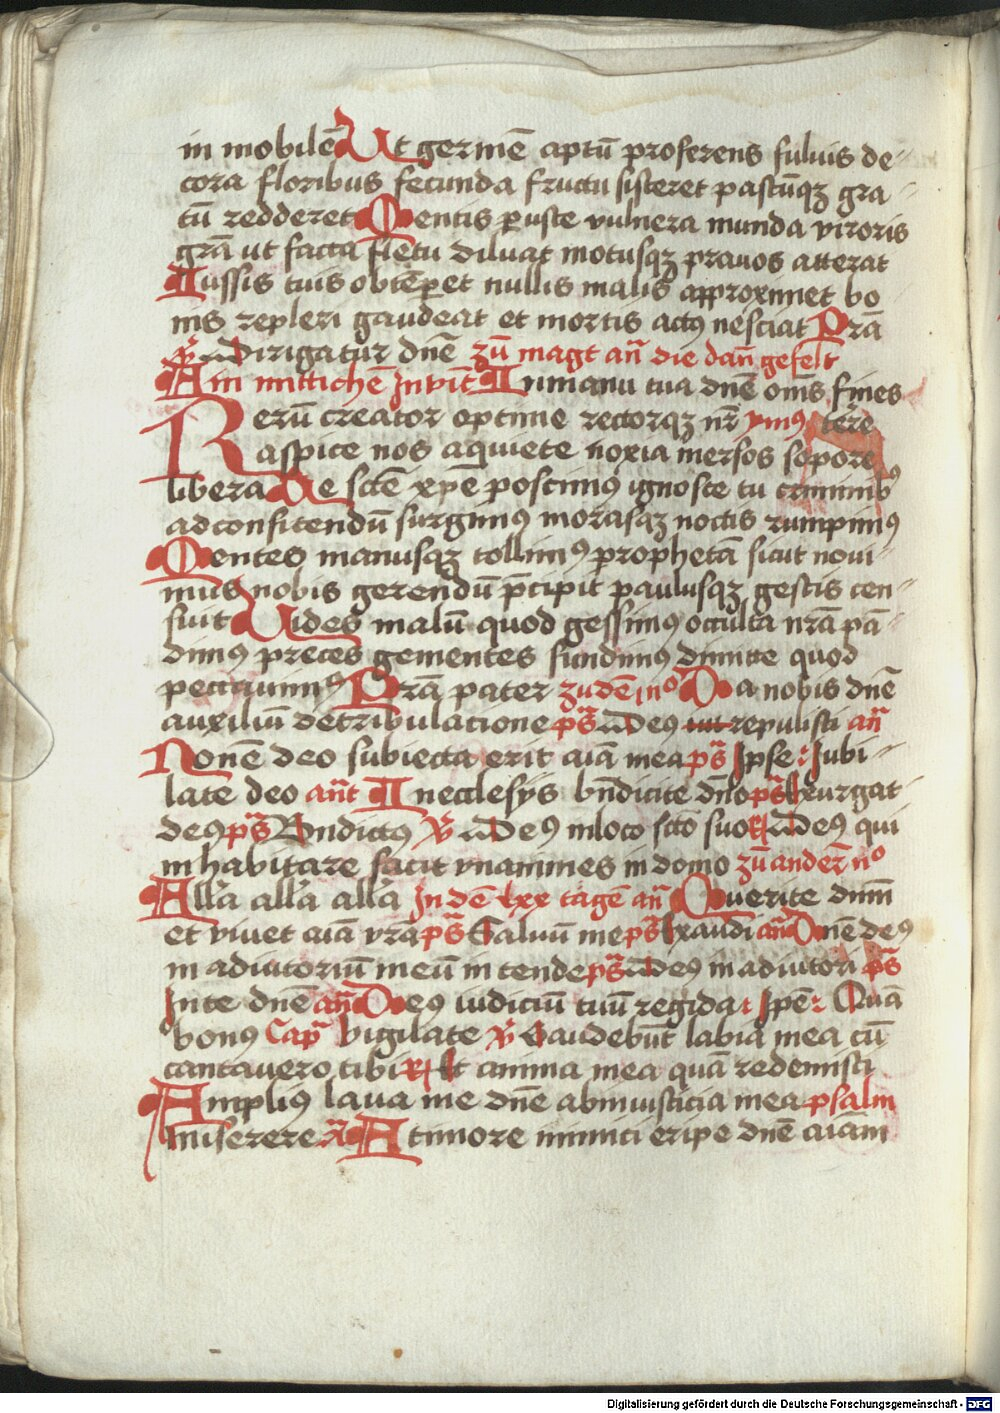 in mobilē Ut germē aptū proferens fuluis de-
cora floribus fecunda fructu sisteret pastūqꝫ gra-
tū redderet Mentis peruste vulnera munda viroris
grā ut facta fletu diluat motusqꝫ prauos atterat
Iussis tuis obtēperet nullis malis approximet bo
nis repleri gaudeat et mortis actꝰ nesciat Prā
Dirigatur dnē zū magt an̄ die dan̄ gefelt
Am mittichē Invit In manu tua dnē om̄s fines
Rerū creator optime rectorqꝫ nr̄ ymnꝰ terre
aspice nos a quiete noxia mersos sopore
libera Te sctē xp̄e poscimꝰ ignosce tu criminibꝰ
ad confitendū surgimꝰ morasqꝫ noctis rumpimꝰ
Mentes manusqꝫ tollimꝰ prophetā sicut noui-
mus nobis gerendū p̄cipit paulusqꝫ gestis cen-
suit Uides malū quod gessimꝰ occulta nr̄a pā-
dimꝰ preces gementes fundimꝰ dimitte quod
peccauimꝰ Prā pater zu dē i nᵒ Da nobis dnē
auxiliū de tribulacione ps̄ Deꝰ repulisti an̄
Nonē deo subiecta erit aīa mea ps̄ Ipse Iubi-
late deo an̄t In ecclesys bn̄dicite dn̄o ps̄ Exurgat
deꝰ ps̄ Bn̄dictꝰ V̄ Deꝰ in loco scto suo R Deꝰ qui
inhabitare facit vnanimes in domo zū ander nᵒ
Allā allā allā In dē lxx tagē an̄ Querite dnm̄
et viuet aīa vrā ps̄ Saluū me ps̄ Exaudi an̄ Dnē deꝰ
in adiutoriū meū intende ps̄ Deꝰ in adiutori ps̄
In te dnē an̄ Deꝰ iudiciū tuū regi da Ipē Quā
bonus Cap̄ Vigilate V̄ Gaudebūt labia mea cū
cantauero tibi R Et anima mea quā redemisti
Amplius laua me dnē ab iniusticia mea psalm
miserere A timore inimici eripe dnē aīam
Digitalisierung gefördert durch die Deutsche Forschungsgemeinschaft - DFG